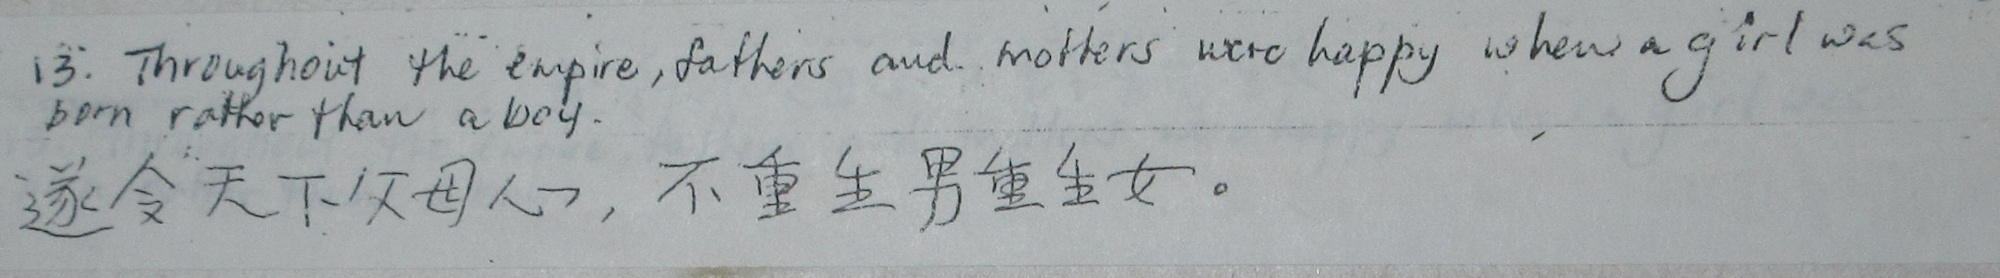 13. Throughout the empire, fathers and mothers were happy when a girl was
born rather than a boy.
遂令天下父母心, 不重生男重生女。